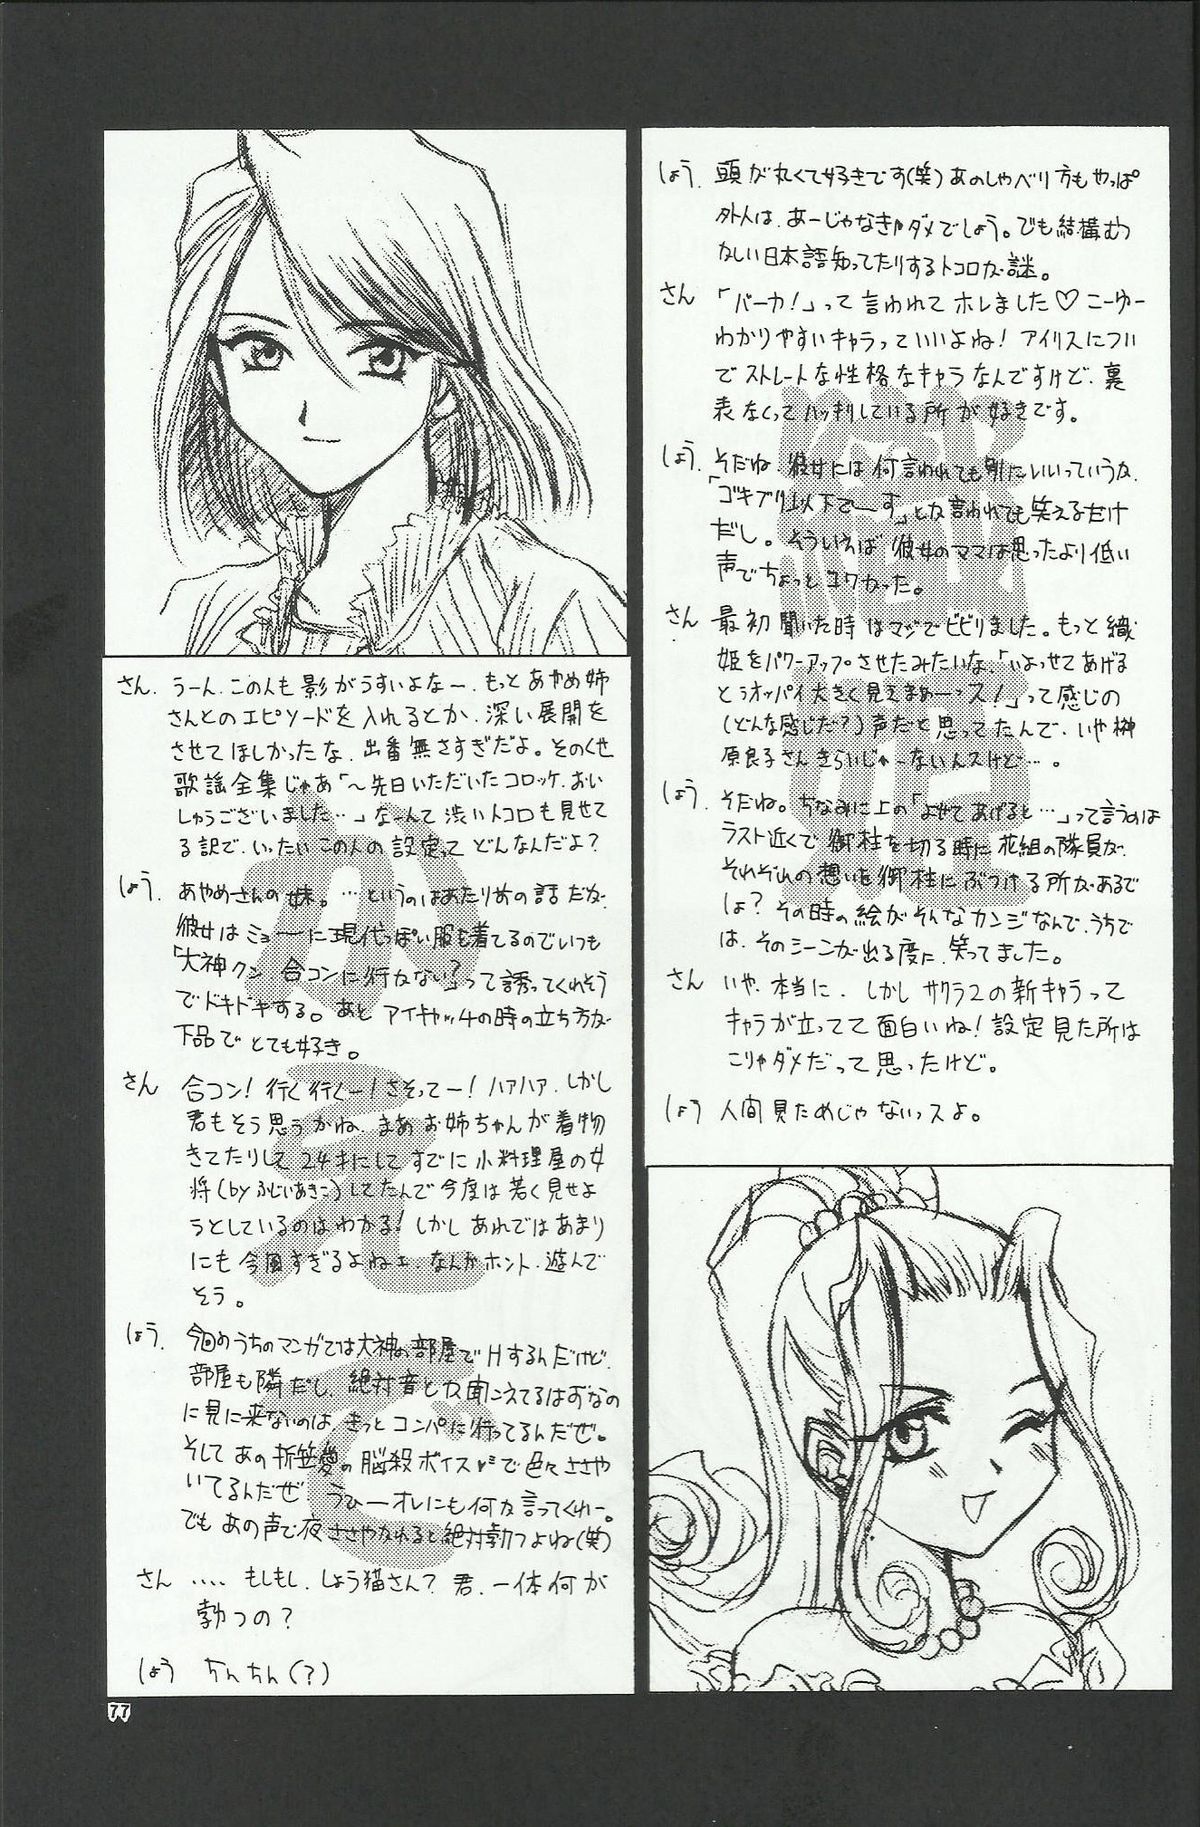 しょう. 頭が丸くて好きです(笑)あのしゃべり方もやっぱ
外人は、あーじゃなきゃダメでしょう。でも結構むつ
かしい日本語知ってたりするトコロが謎。
さん 「バーカ!」って言われてホレました♡こーゆー
わかりやすいキャラっていいよね!アイリスについ
でストレートな性格なキャラなんですけど、裏
表なくってハッキリしている所が好きです。
しょう. そだね.彼女には何言われても別にいいっていうか、
「ゴキブリ以下でーす」とか言われても笑えるだけ
だし。そういえば彼女のママは思ったより低い
声でちょっとコワかった。
さん 最初聞いた時はマジでビビりました。もっと織
姫をパワーアップさせたみたいな、「いよっせてあげる
とぅオッパイ大きく見えまぁーっス!」って感じの
(どんな感じだ?)声だと思ってたんで、いや榊
原良子さんきらいじゃーないんスけど…。
しょう. そだね。ちなみに上の「よせてあげると…」って言うのは
ラスト近くで御柱を切る時に花組の隊員が、
それぞれの想いを御柱にぶつける所があるで
しょ?その時の絵がそんなカンジなんで、うちで
は、そのシーンが出る度に、笑ってました。
さん いや、本当に、しかしサクラ2の新キャラって
キャラが立ってて面白いね!設定見た所は
こりゃダメだって思ったけど。
しょう 人間見ためじゃないっスよ。
さん. うーん、この人も影がうすいよなー、もっとあやめ姉
さんとのエピソードを入れるとか、深い展開を
させてほしかったな、出番無さすぎだよ。そのくせ
歌謡全集じゃあ「〜先日いただいたコロッケ、おい
しゅうございました…」なーんて渋いトコロも見せて
る訳で、いったいこの人の設定ってどんなんだよ?
しょう. あやめさんの妹。…というのはあたり前の話だが、
彼女はミョーに現代っぽい服を着てるのでいつも
「大神クン 合コンに行かない?」って誘ってくれそう
でドキドキする。あとアイキャッチの時の立ち方が
下品でとても好き。
さん 合コン!行く行くー!さそってー!ハァハァ、しかし
君もそう思うかね、まあお姉ちゃんが着物
きてたりして24才にしてすでに小料理屋の女
将(byふじいあきこ)してたんで今度は若く見せよ
うとしているのはわかる!しかしあれではあまり
にも今風すぎるよねェ、なんかホント、遊んで
そう。
しょう. 今回のうちのマンガでは大神の部屋でHするんだけど、
部屋も隣だし、絶対音とか聞こえてるはずなの
に見に来ないのは、きっとコンパに行ってるんだぜ。
そしてあの折笠愛の脳殺ボイスで色々ささや
いてるんだぜ うひーオレにも何か言ってくれー。
でもあの声で夜ささやかれると絶対勃つよね(笑)
さん ‥‥もしもし、しょう猫さん?君、一体何が
勃つの?
しょう ちんちん(?)
かえで
77